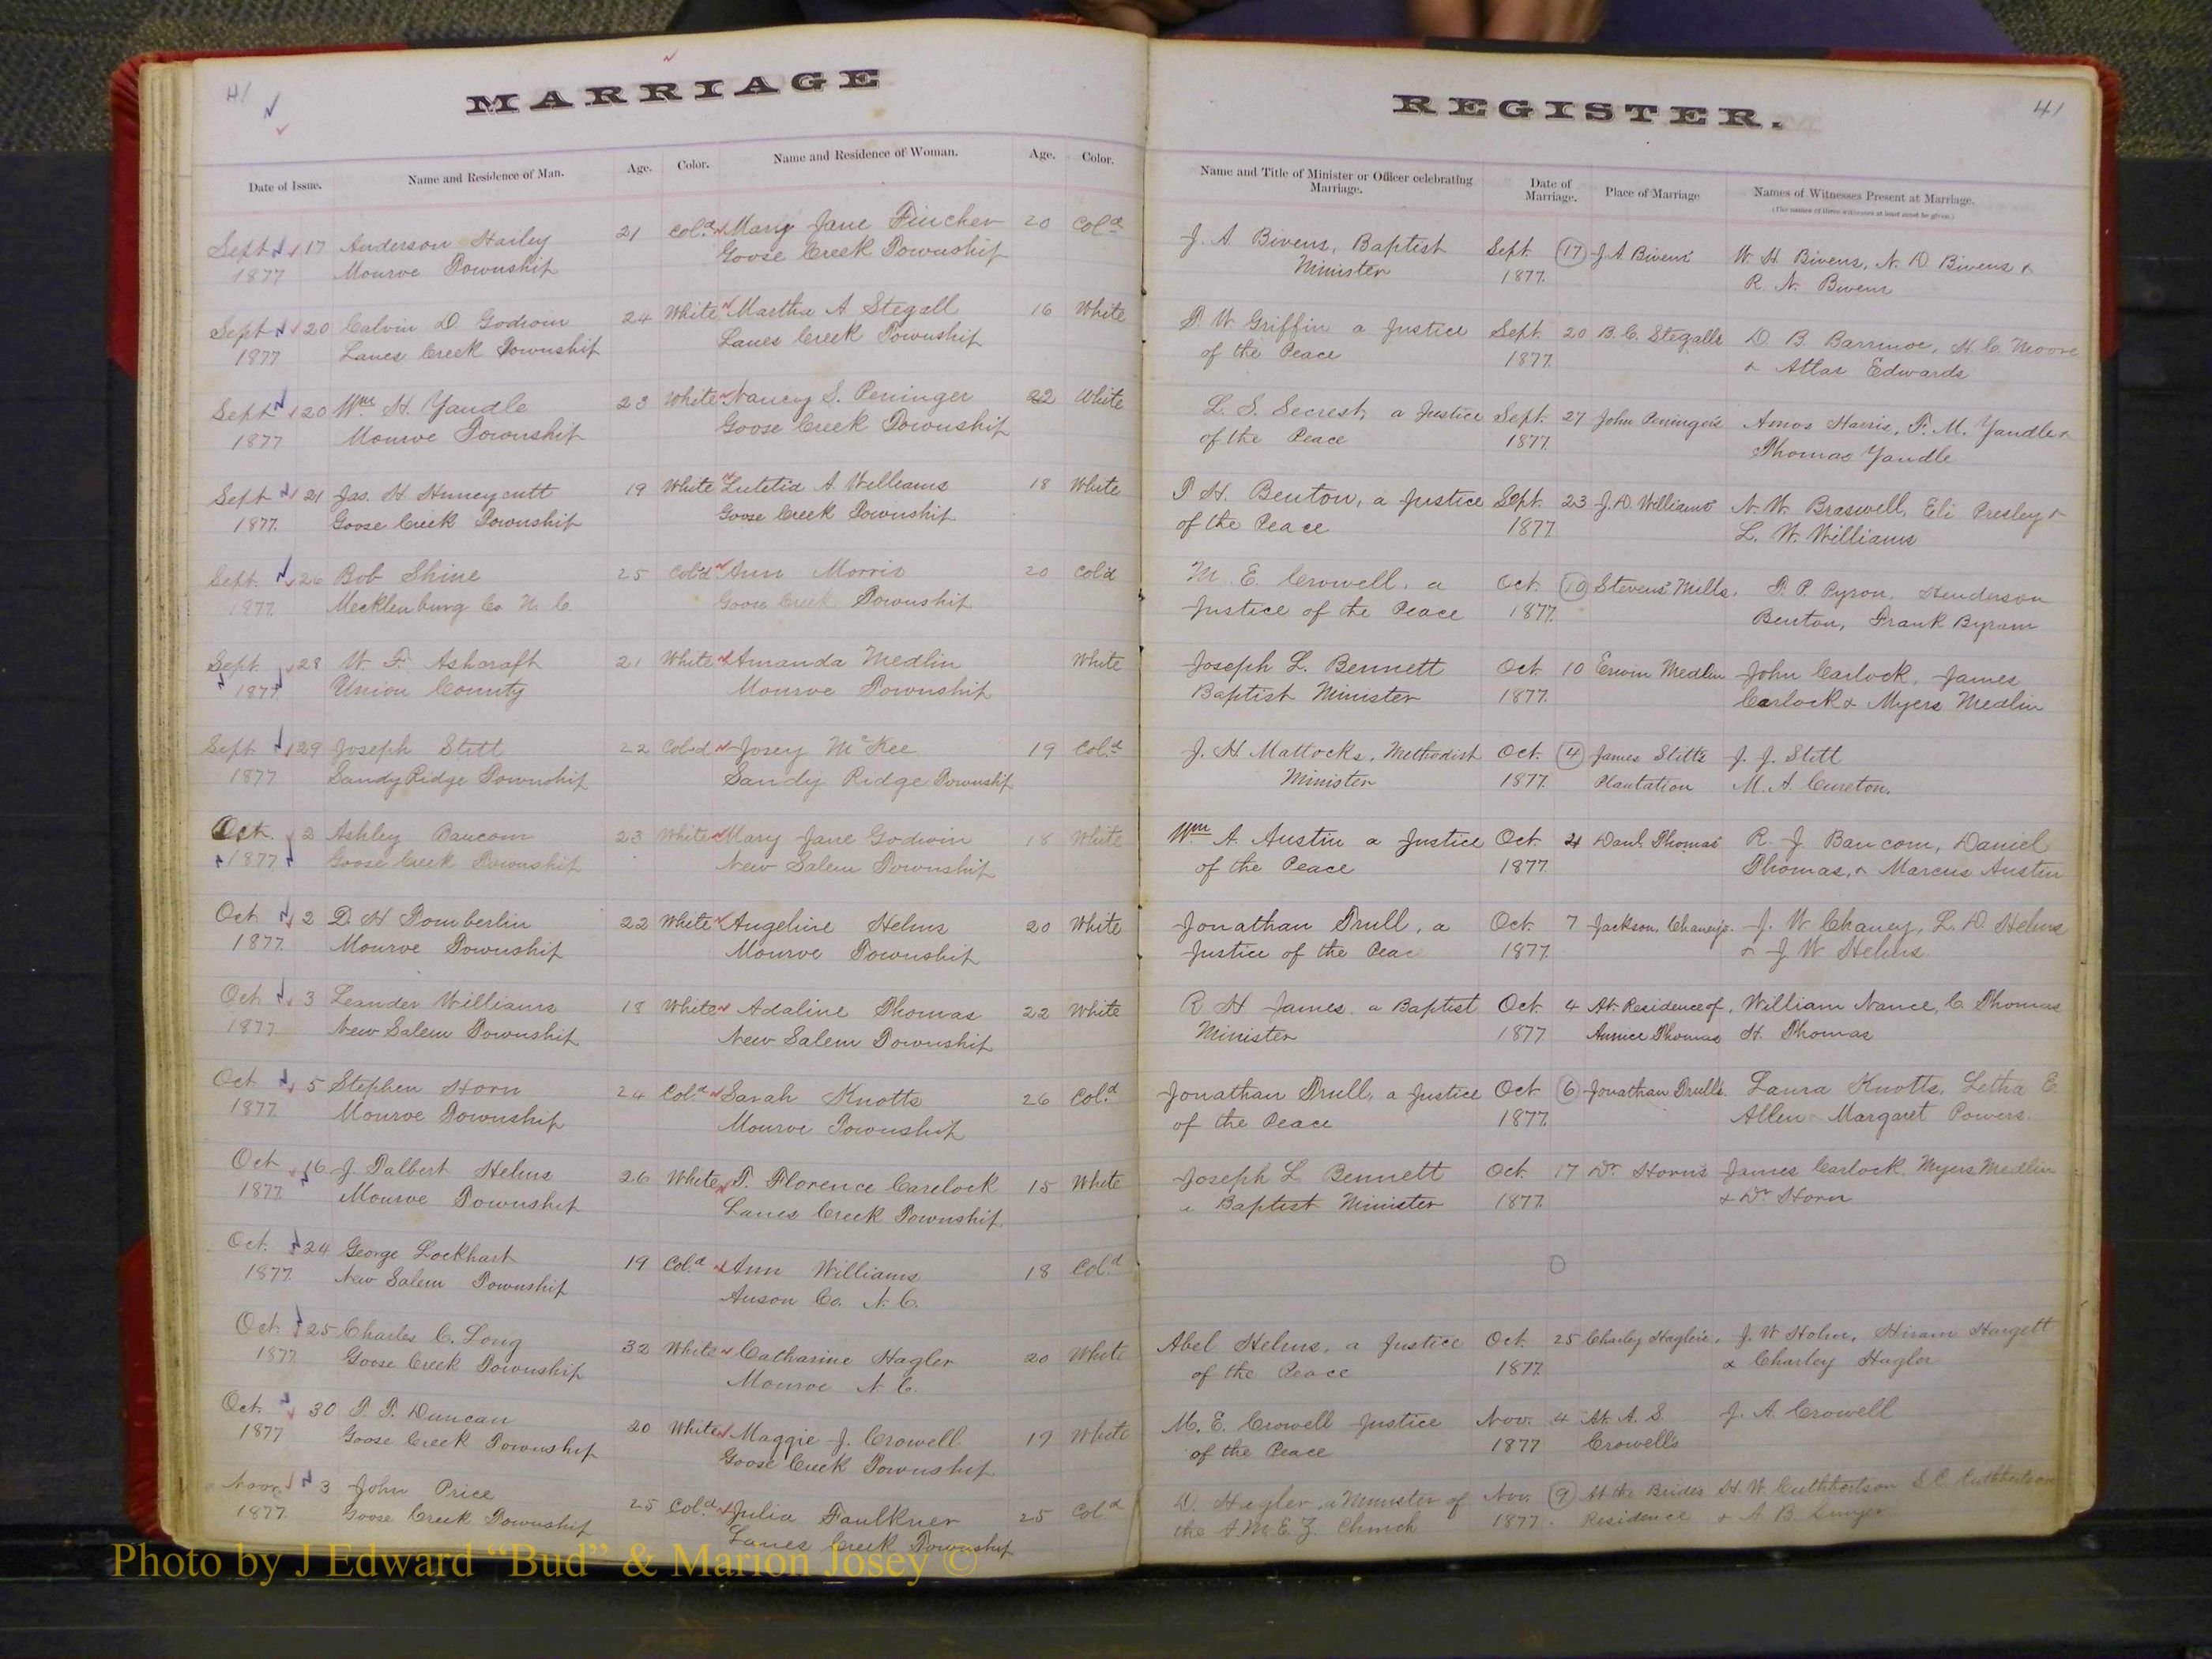 41
MARRIAGE
Date of Issue. Name and Residence of Man. Age. Color. Name and Residence of Woman. Age. Color.
Sept 17 Anderson Hailey 21 Col.d Mary Jane Fincher 20 Col.d
1877 Monroe Township Goose Creek Township
Sept 20 Calvin D. Godwin 24 White Martha A Stegall 16 White
1877 Lanes Creek Township Lanes Creek Township
Sept 20 Wm H. Yandle 23 White Nancy S. Peninger 22 White
1877 Monroe Township Goose Creek Township
Sept 21 Jas. H. Huneycutt 19 White Lutetia A. Williams 18 White
1877. Goose Creek Township Goose Creek Township
Sept. 26 Bob Shine 25 Col'd Ann Morris 20 Col'd
1877. Mecklenburg Co N. C. Goose Creek Township
Sept 28 W. F. Ashcraft 21 White Amanda Medlin White
1877 Union County Monroe Township
Sept 29 Joseph Stitt 22 Col'd Josey McKee 19 Col.d
1877 Sandy Ridge Township Sandy Ridge Township
Oct. 2 Ashley Baucom 23 White Mary Jane Godwin 18 White
1877 Goose Creek Township New Salem Township
Oct 2 D. H Tomberlin 22 White Angeline Helms 20 White
1877. Monroe Township Monroe Township
Oct 3 Leander Williams 18 White Adaline Thomas 22 White
1877 New Salem Township New Salem Township
Oct 5 Stephen Horn 24 Col.d Sarah Knotts 26 Col.d
1877 Monroe Township Monroe Township
Oct 16 J. Talbert Helms 26 White T. Florence Carelock 15 White
1877 Monroe Township Lanes Creek Township.
Oct. 24 George Lockhart 19 Col.d Ann Williams 18 Col.d
1877. New Salem Township Anson Co. N. C.
Oct 25 Charles C. Long 32 White Catharine Hagler 20 White
1877 Goose Creek Township Monroe N C.
Oct. 30 T. T. Duncan 20 White Maggie J. Crowell 19 White
1877 Goose Creek Township Goose Creek Township
Nov. 3 John Price 25 Col.d Julia Faulkner 25 Col.d
1877. Goose Creek Township Lanes Creek Township
REGISTER.
41
Name and Title of Minister or Officer celebrating Marriage. Date of Marriage. Place of Marriage Names of Witnesses Present at Marriage.
(The names of three witnesses at least must be given.)
J. A Bivens, Baptist Sept. 17 J. A. Bivens' W. H. Bivens, N. D. Bivens &
Minister 1877. R. N. Bivens
T. W. Griffin a Justice Sept. 20 B. C. Stegalls D. B. H. C. Moore
of the Peace 1877. & Edwards
L. S. Secrest, a Justice Sept. 27 John Peningers Amos Harris, F. M. Yandle &
of the Peace 1877. Thomas Yandle
T. H. Benton, a Justice Sept. 23 J. D. Williams' N. W. Braswell, Eli Presley &
of the Peace 1877 L. W. Williams
M. E. Crowell, a Oct. 10 Stevens' Mills. T. P. Pyron, Henderson
Justice of the Peace 1877. Benton, Frank Byram
Joseph L. Bennett Oct. 10 Erwin Medlin John Carlock, James
Baptist Minister 1877. Carlock & Myers Medlin
J. H. Mattocks, Methodist Oct. 4 James Stitts J. J. Stitt
Minister 1877. Plantation M. A. Cureton.
Wm A. Austin a Justice Oct Danl. Thomas' R. J. Baucom, Daniel
of the Peace 1877 Thomas, & Marcus Austin
Jonathan Trull, a Oct. 7 Jackson Chaney's. J. W. Chaney, L. D. Helms
Justice of the Peac 1877. & J. W. Helms.
R H James, a Baptist Oct 4 At Residence of William Nance, C Thomas
Minister 1877 Thomas H. Thomas
Jonathan Trull, a Justice Oct 6 Jonathan Trulls. Laura Knotts, Letha E
of the Peace 1877. Allen Margaret Powers.
Joseph L Bennett Oct. 17 Dr Horns James Carlock Myers Medlin
Baptist Minister 1877. & Dr Horn
Abel Helms, a Justice Oct. 25 Charley Haglers. J. W Holm, Hiram Hargett
of the Peace 1877. & Charley Hagler
M. E. Crowell Justice Nov. 4 At A. S. J. A Crowell
of the Peace 1877 Crowell's
D. Hagler, a Minister of Nov. 9 At the Brides H. W. Cuthbertson S. C. Cuthbertson
the A. M. E. Z. Church 1877. Residence & A. B.
Photo by J Edward “Bud” & Marion Josey ©